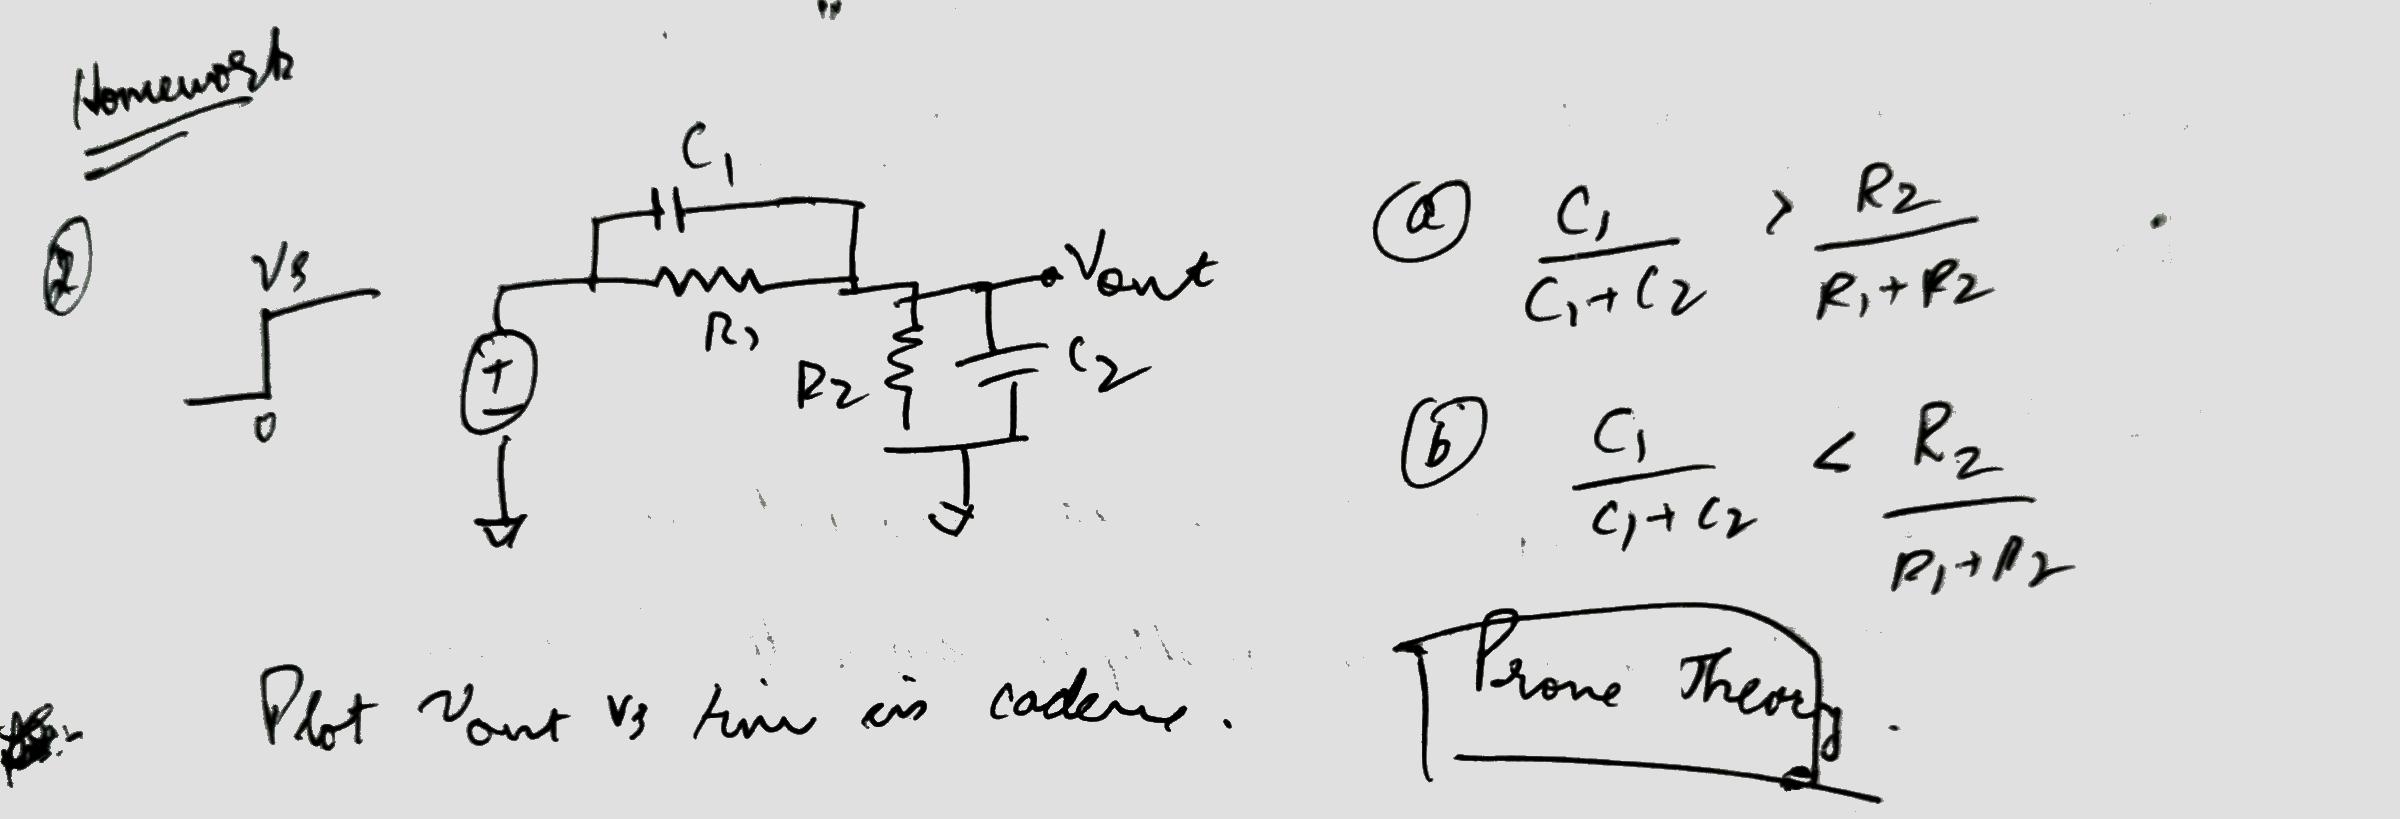 Homework
2
Vs
0
C1
R1
Vout
R2
C2
a C1/(C1+C2) > R2/(R1+R2)
b C1/(C1+C2) < R2/(R1+R2)
Plot Vout vs time in cadence.
Prove Theory.